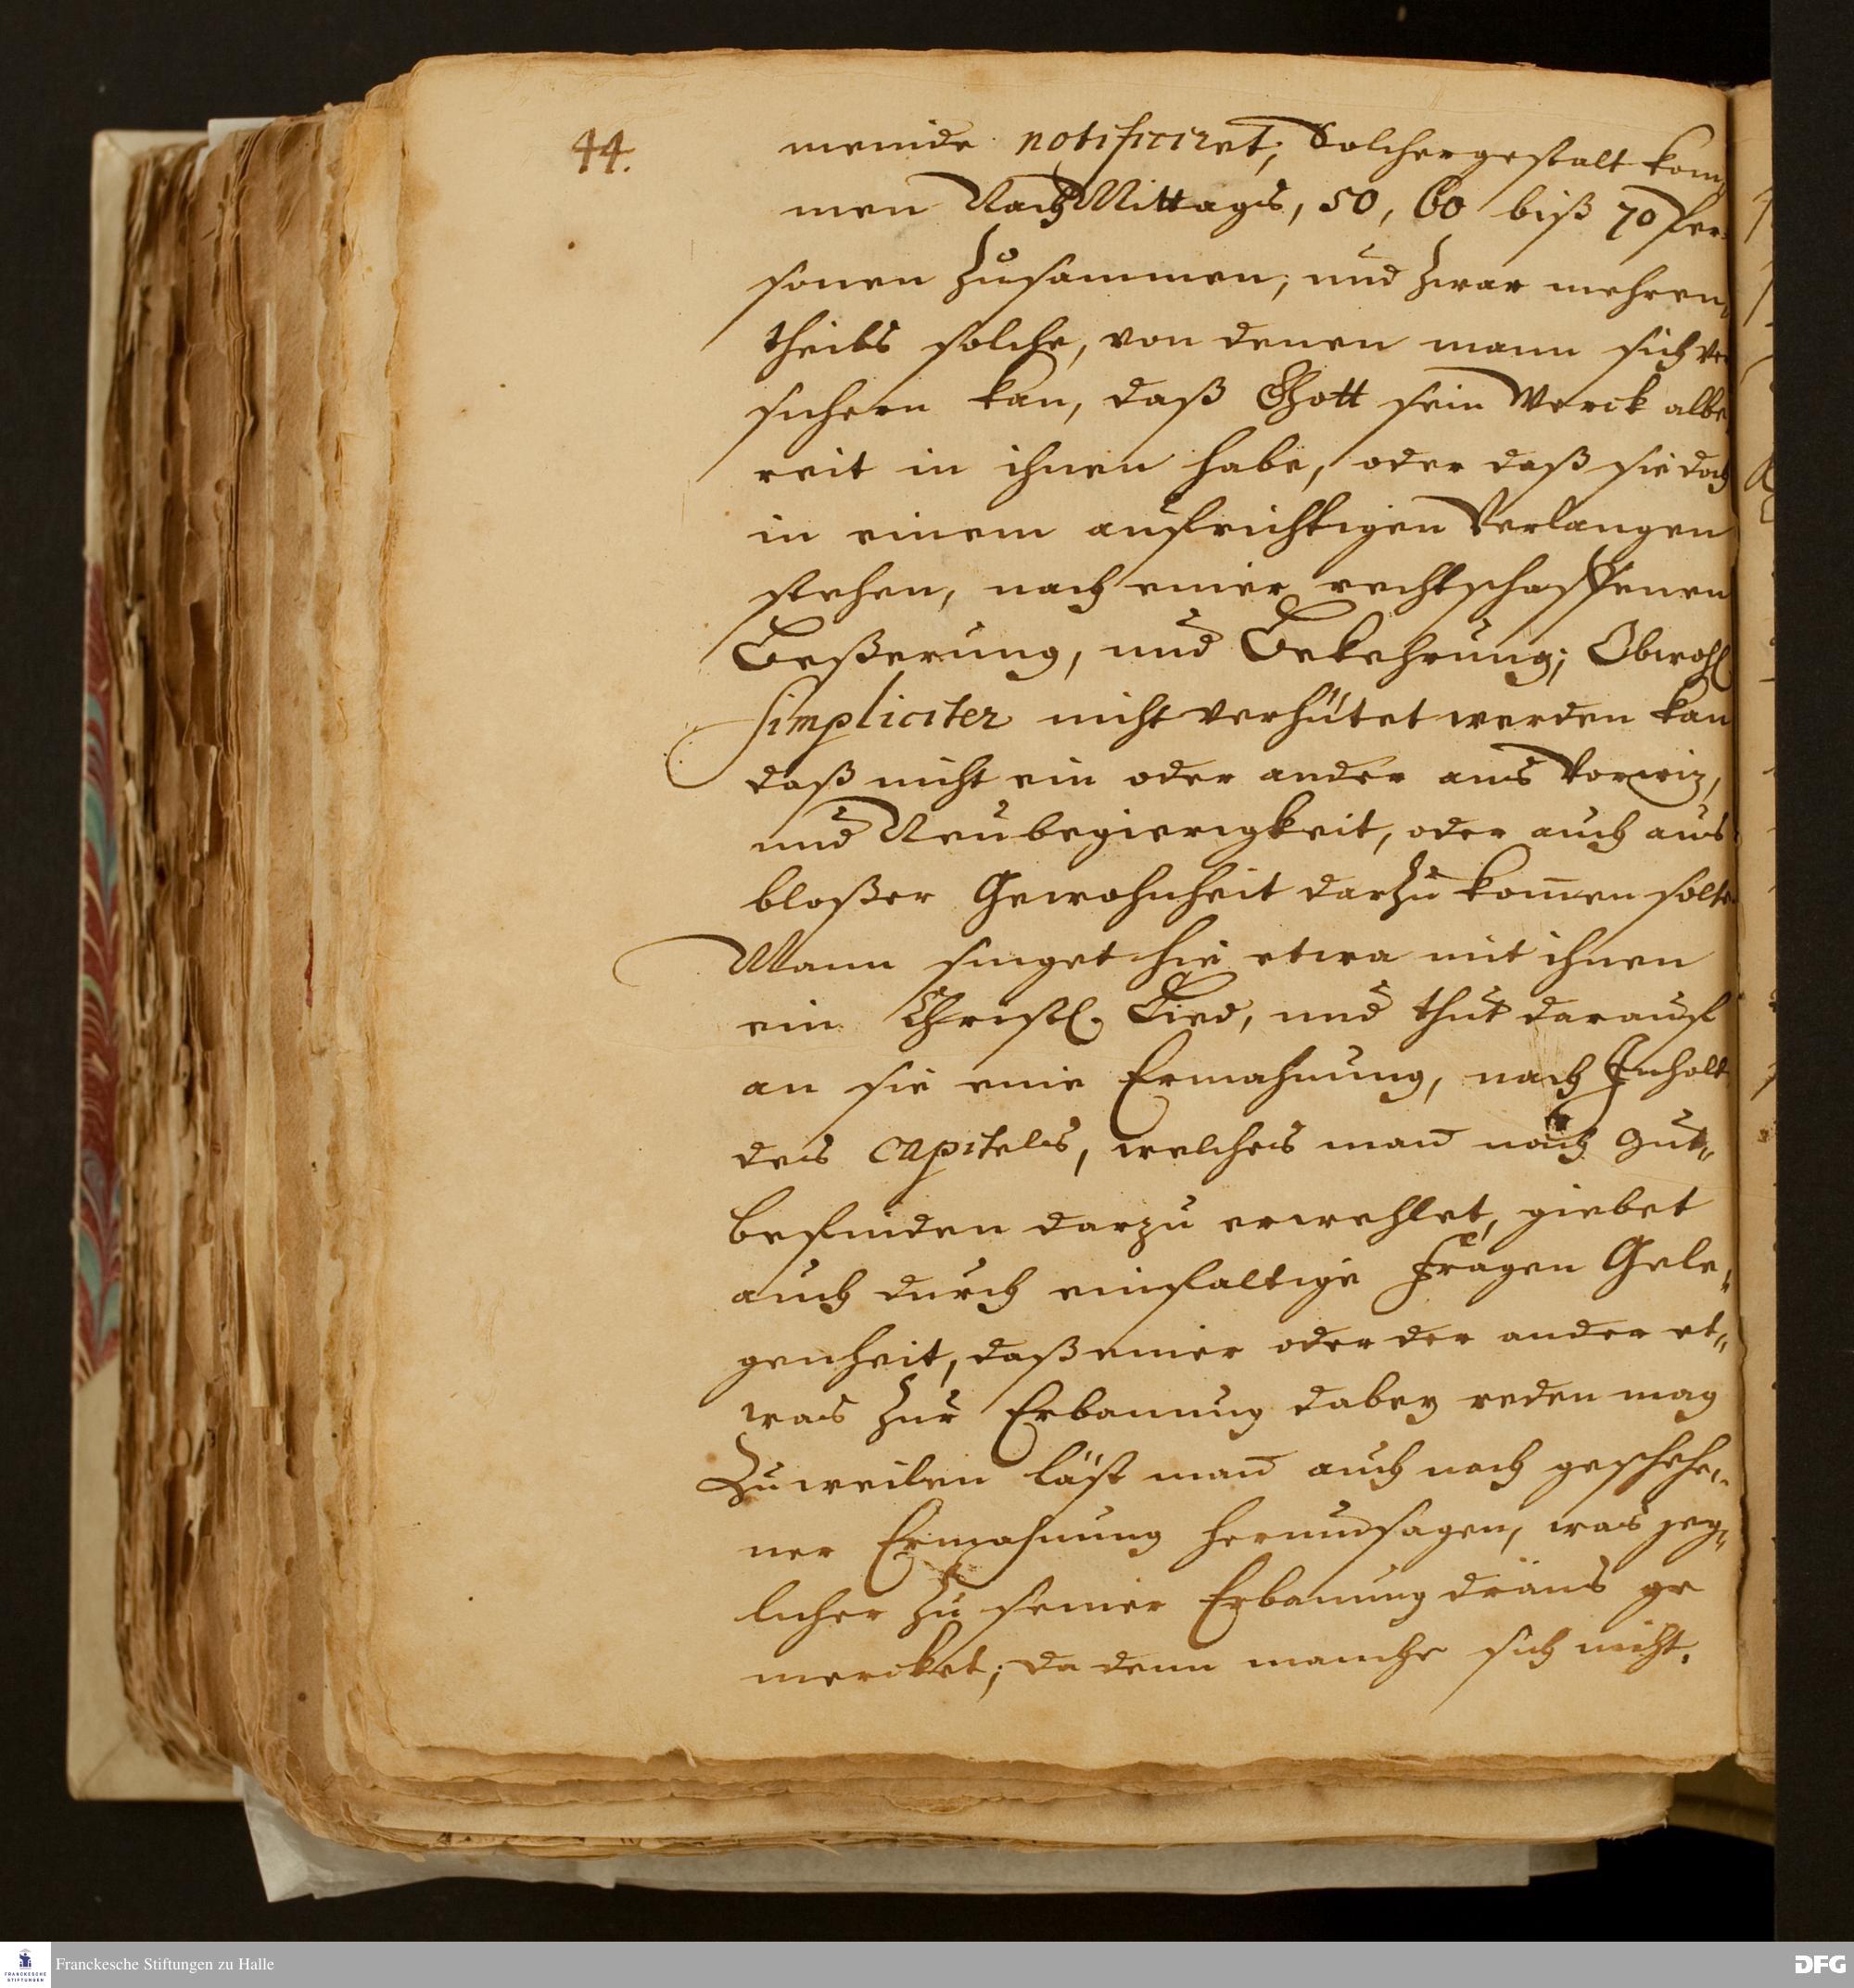 44.
meinde notificiret; Solchergestalt kom¬
men Nach Mittags, 50, 60 biß 70 Per¬
sonen zusammen, und zwar mehren¬
theils solche, von denen mann sich ver
sichern kan, daß Gott sein Werck albe¬
reit in ihnen habe, oder daß sie doch
in einem aufrichtigen Verlangen
stehen, nach einer rechtschaffenen
Beßerung, und Bekehrung; Obwohl
simpliciter nicht verhütet werden kan
daß nicht ein oder ander aus Vorwiz,
und Neubegierigkeit, oder auch aus
bloßer Gewohnheit darzu kom̅en solte
Mann singet hie etwa mit ihnen
ein Christl. Lied, und thut darauf
an sie eine Ermahnung, nach Inhalt
des Capitels, welches man̅ nach Gut¬
befinden darzu erwehlet, giebet
auch durch einfältige Fragen Gele¬
genheit, daß einer oder der ander et¬
was zur Erbauung dabey reden mag
Zuweilen läst man̅ auch nach geschehe¬
ner Ermahnung herumsagen, was jeg¬
licher zu seiner Erbauung draus ge
mercket; da denn manche sich nicht
Franckesche Stiftungen zu Halle
FRANCKESCHE
STIFTUNGEN
DFG